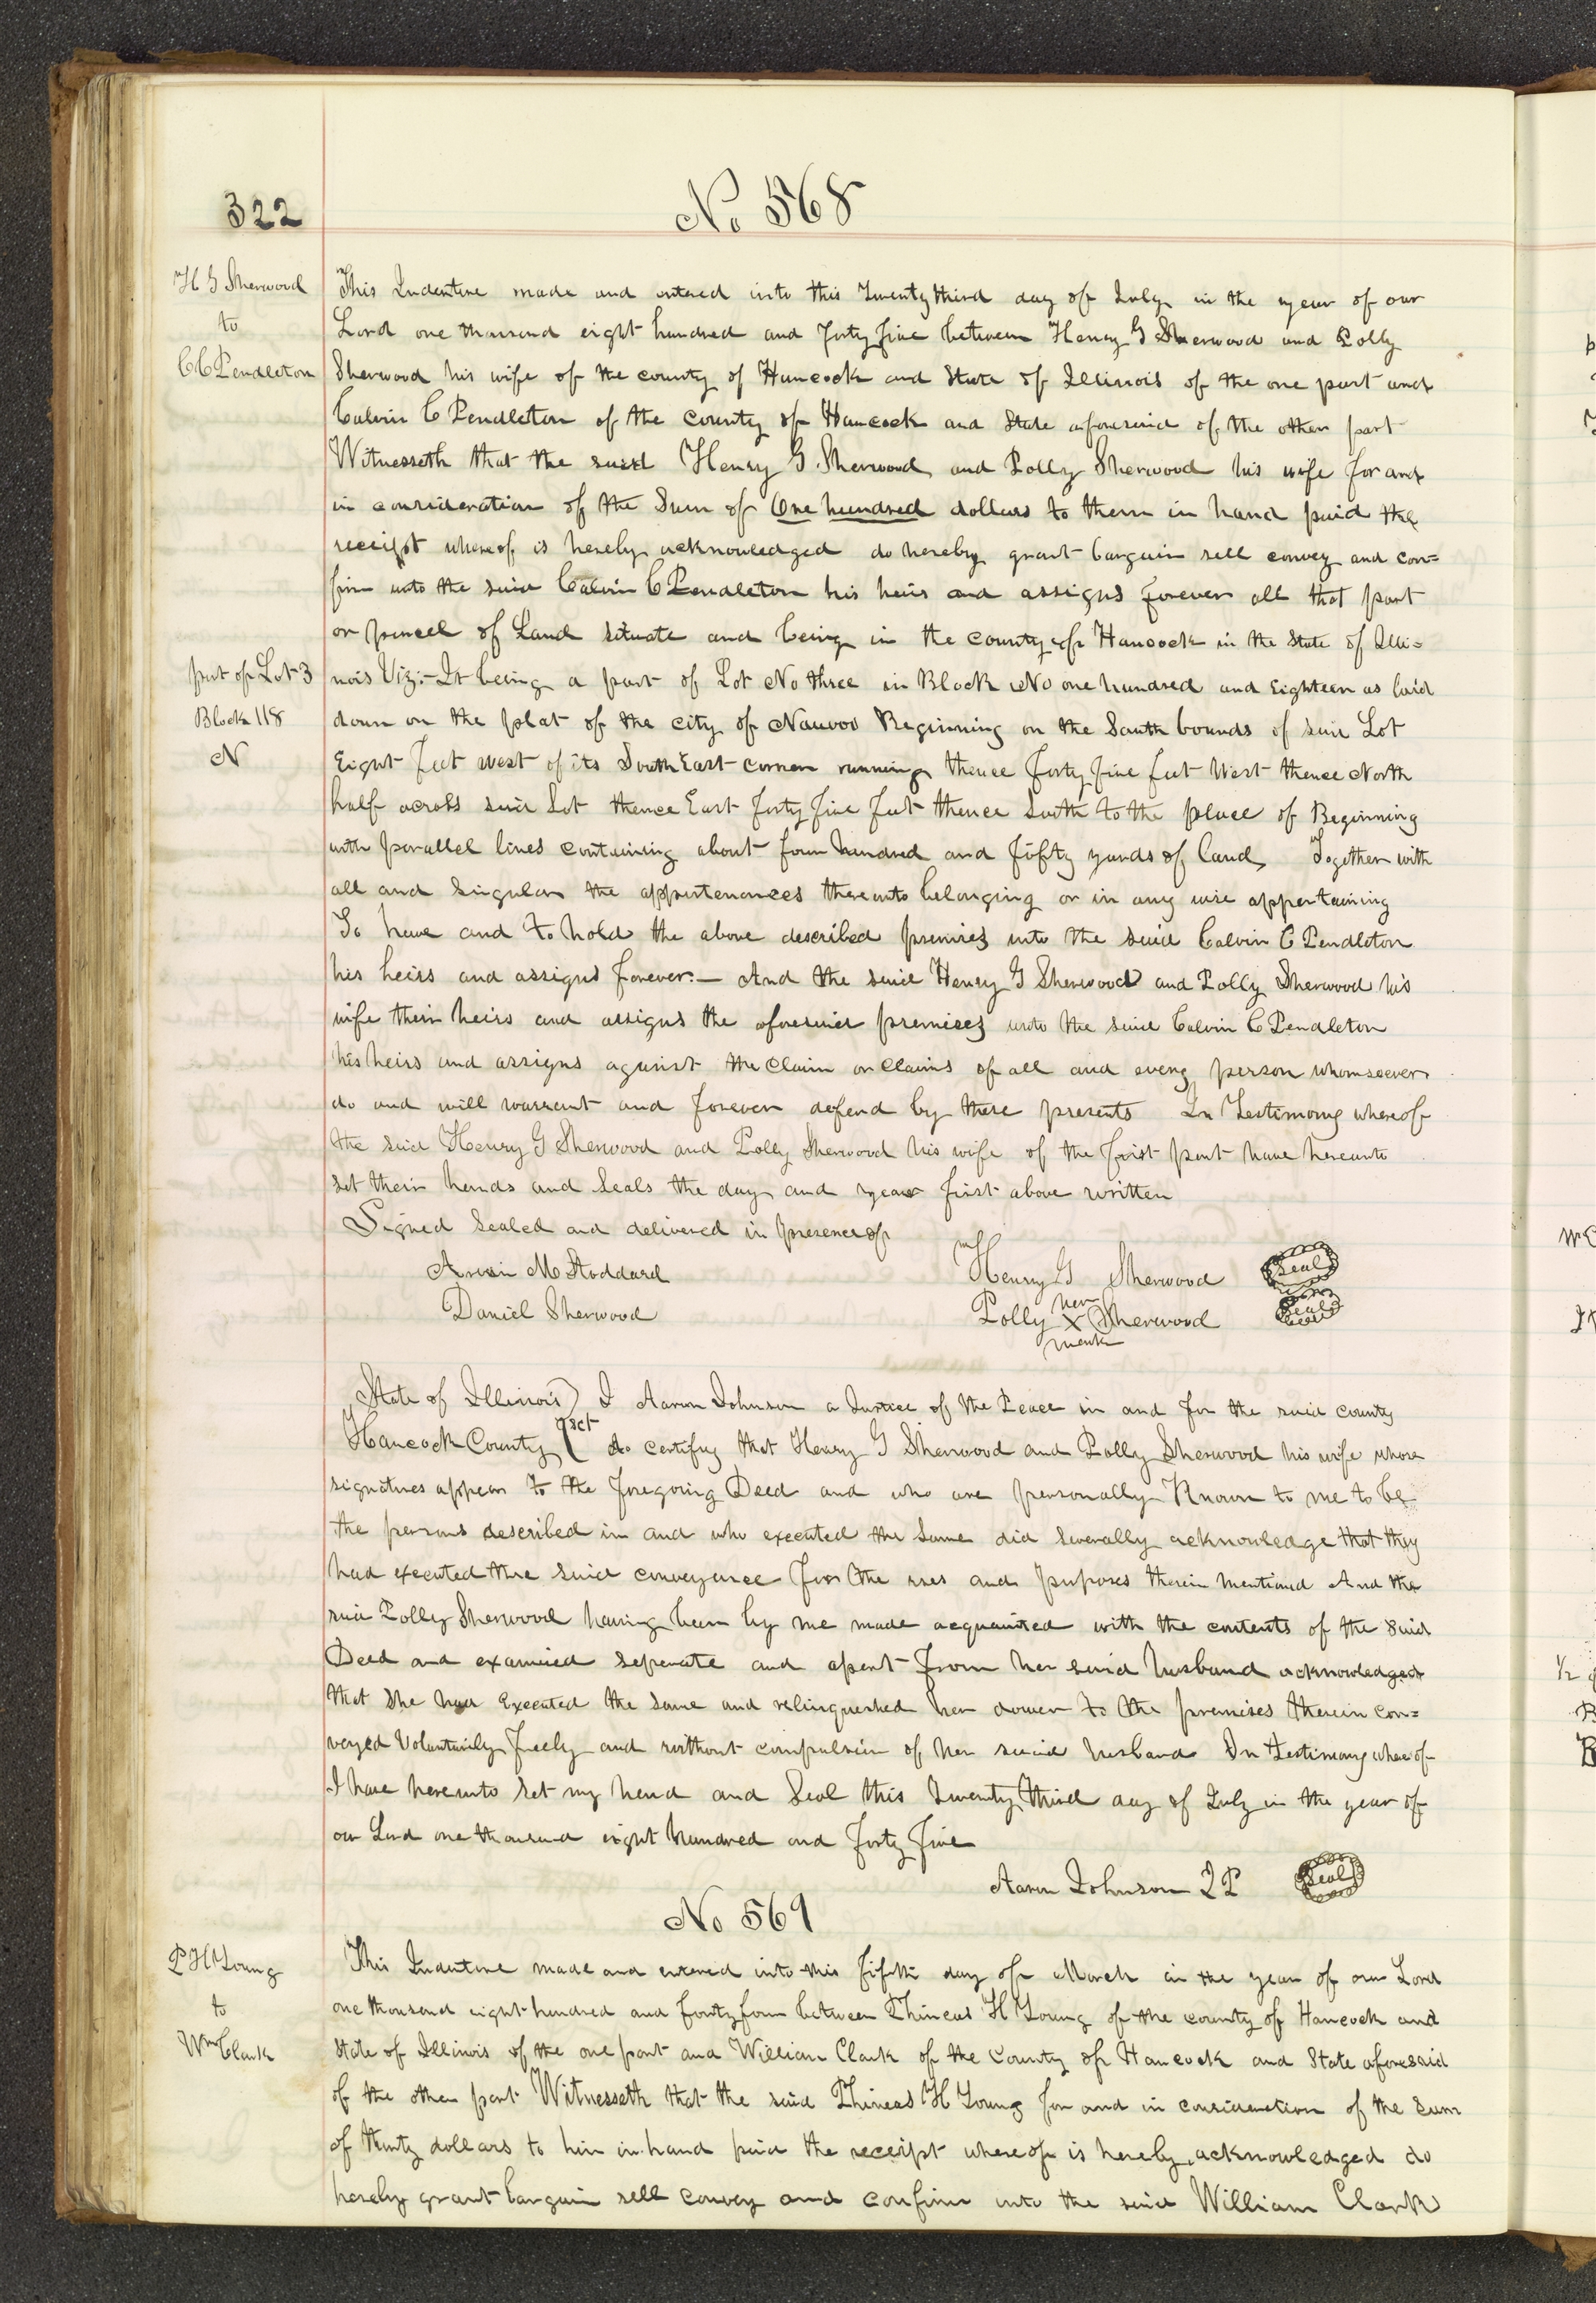 322
No 568
H G Sherwood
to
C C Pendleton
This Indenture made and entered into this Twenty third day of July in the year of our
Lord one thousand eight hundred and forty five between Henry G Sherwood and Polly
Sherwood his wife of the county of Hancock and State of Illinois of the one part and
Calvin C Pendleton of the County of Hancock and State aforesaid of the other part
Witnesseth that the said Henry G Sherwood and Polly Sherwood his wife for and
in consideration of the Sum of One hundred dollars to them in hand paid the
receipt whereof is hereby acknowledged do hereby grant bargain sell convey and con=
firm unto the said Calvin C Pendleton his heirs and assigns forever all that part
or parcel of Land situate and being in the county of Hancock in the State of Illi=
part of Lot 3
Block 118
N
nois Viz:- It being a part of Lot No three in Block No one hundred and Eighteen as laid
down on the plat of the city of Nauvoo Beginning on the South bounds of said Lot
Eight feet west of its South East corner running thence forty five feet West thence North
half across said Lot thence East forty five feet thence South to the place of Beginning
with parallel lines containing about four hundred and fifty yards of land, Together with
all and singular the appurtenances thereunto belonging or in any wise appertaining
To have and to hold the above described premises unto the said Calvin C Pendleton
his heirs and assigns forever:— And the said Henry G Sherwood and Polly Sherwood his
wife their heirs and assigns the aforesaid premises unto the said Calvin C Pendleton
his heirs and assigns against the claim or claims of all and every person whomsoever
do and will warrant and forever defend by these presents In Testimony whereof
the said Henry G Sherwood and Polly Sherwood his wife of the first part have hereunto
set their hands and Seals the day and year first above written
Signed Sealed and delivered in presence of
Arvin M Stoddard
Daniel Sherwood
Henry G Sherwood Seal
her
Polly X Sherwood Seal
mark
State of Illinois ) I Aaron Johnson a Justice of the Peace in and for the said county
Hancock County ( sct do certify that Henry G Sherwood and Polly Sherwood his wife whose
signatures appear to the foregoing Deed and who are personally Known to me to be
the persons described in and who executed the same did severally acknowledge that they
had executed the said conveyance for the uses and purposes therein mentioned And the
said Polly Sherwood having been by me made acquainted with the contents of the said
Deed and examined seperate and apart from her said husband acknowledged
that she had Executed the same and relinquished her dower to the premises therein con=
veyed Voluntarily Freely and without compulsion of her said husband In testimony whereof
I have hereunto set my hand and Seal this Twenty third day of July in the year of
our Lord one thousand eight hundred and forty five
Aaron Johnson J P Seal
No 569
P H Young
to
Wm Clark
This Indenture made and entered into this fifth day of March in the year of our Lord
one thousand eight hundred and forty four between Phineas H Young of the county of Hancock and
State of Illinois of the one part and William Clark of the County of Hancock and State aforesaid
of the other part Witnesseth that the said Phineas H Young for and in consideration of the Sum
of thirty dollars to him in hand paid the receipt whereof is hereby acknowledged do
hereby grant bargain sell convey and confirm unto the said William Clark